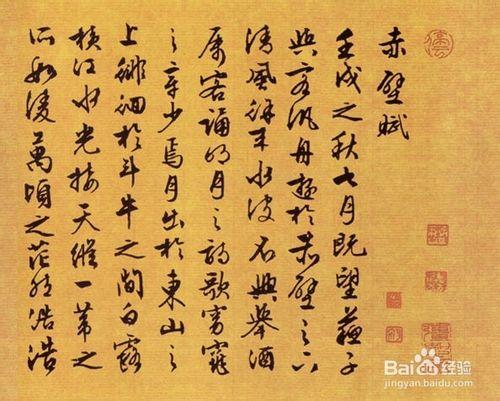 赤壁賦
壬戌之秋七月既望蘇子
與客汎舟遊於赤壁之下
清風徐来水波不興舉酒
屬客誦明月之詩歌窈窕
之章少焉月出於東山之
上徘徊於斗牛之間白露
横江水光接天縱一葦之
所如凌萬頃之茫然浩浩
Bai度经验
jingyan.baidu.com